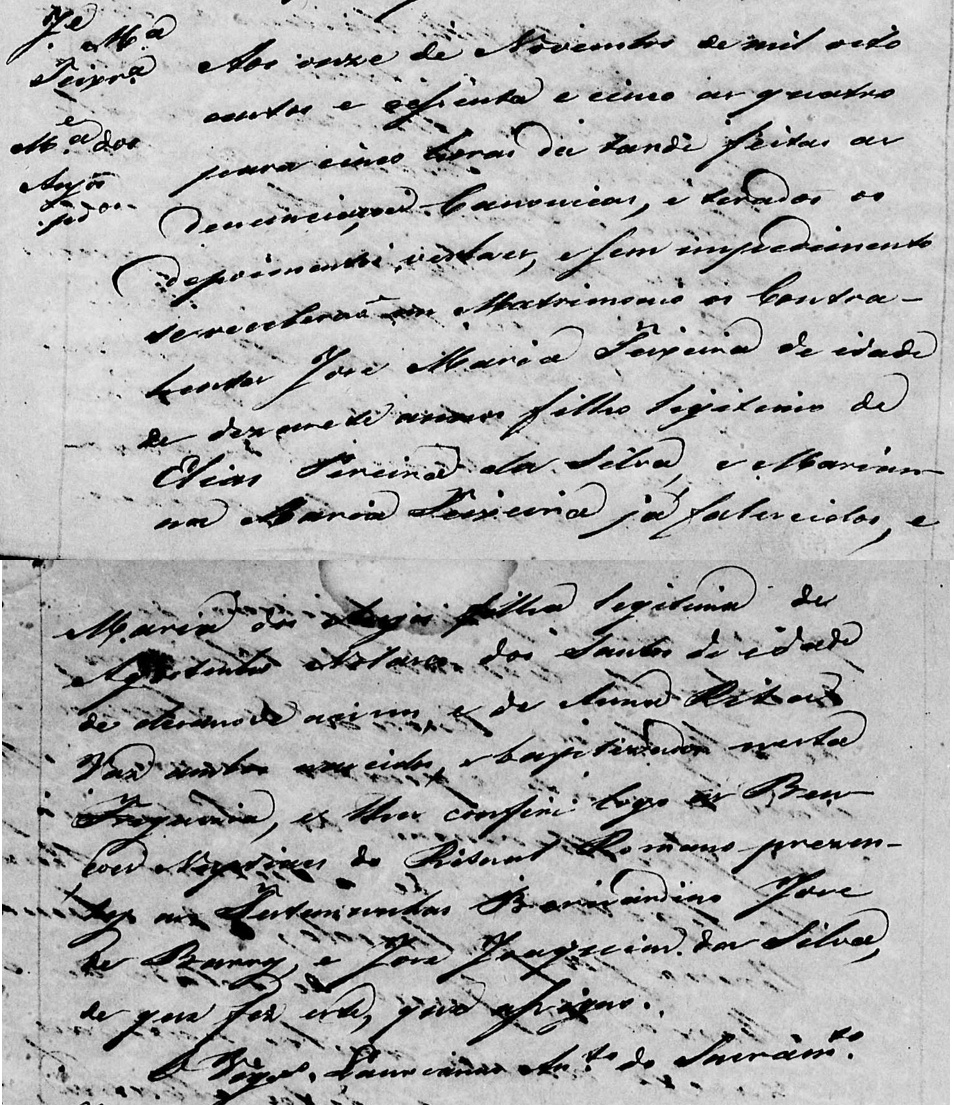 Je Ma
Teixra
e
Ma dos
Anjos
Aos onze de Novembro de mil oito
centos e sessenta e cinco as quatro
para cinco horas da tarde feitas as
denunciaçoes Canonicas, e tirados os
depoimentos verbaes, e sem impedimento
se receberaõ em Matrimonio os Contra-
hentes Jose Maria Teixeira de idade
de dezasete annos filho legitimo de
Elias Pereira da Silva, e Marian-
na Maria Teixeira já falecidos, e
Maria dos Anjos filha legitima de
Agostinho dos Santos de idade
de e de Anna Rita
Vaz ambos nascidos, e baptizados nesta
Freguesia, e lhes conferi logo as Ben-
coes Nupciaes do Ritual Romano prezen-
tes as Testemunhas Bernardino Jose
de Barros, e Jose Joaquim da Silva,
de que fez este, que assigno.
O Vigro. Anto. do Sacramto.